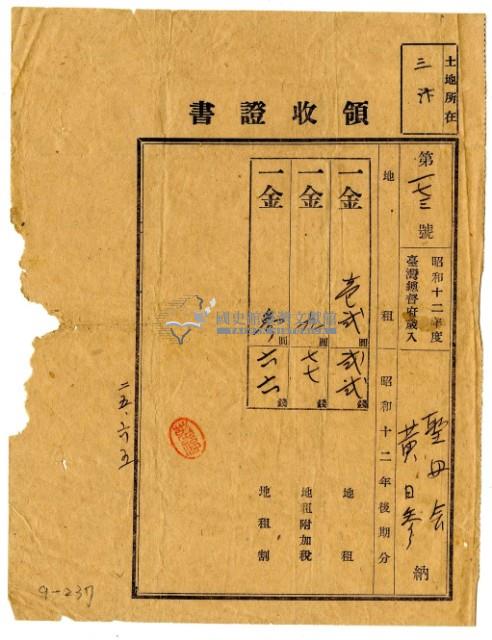 土地所在
三汴
領收證書
第一七三號
昭和十二年度
臺灣總督府歲入
聖母会
黃日參
納
地租
昭和十二年後期分
一金 壱弍圓弍弍錢 地租
一金 九圓七七錢 地租附加稅
一金 參圓六六錢 地租割
二五.六五
國史館臺灣文獻館
9-237